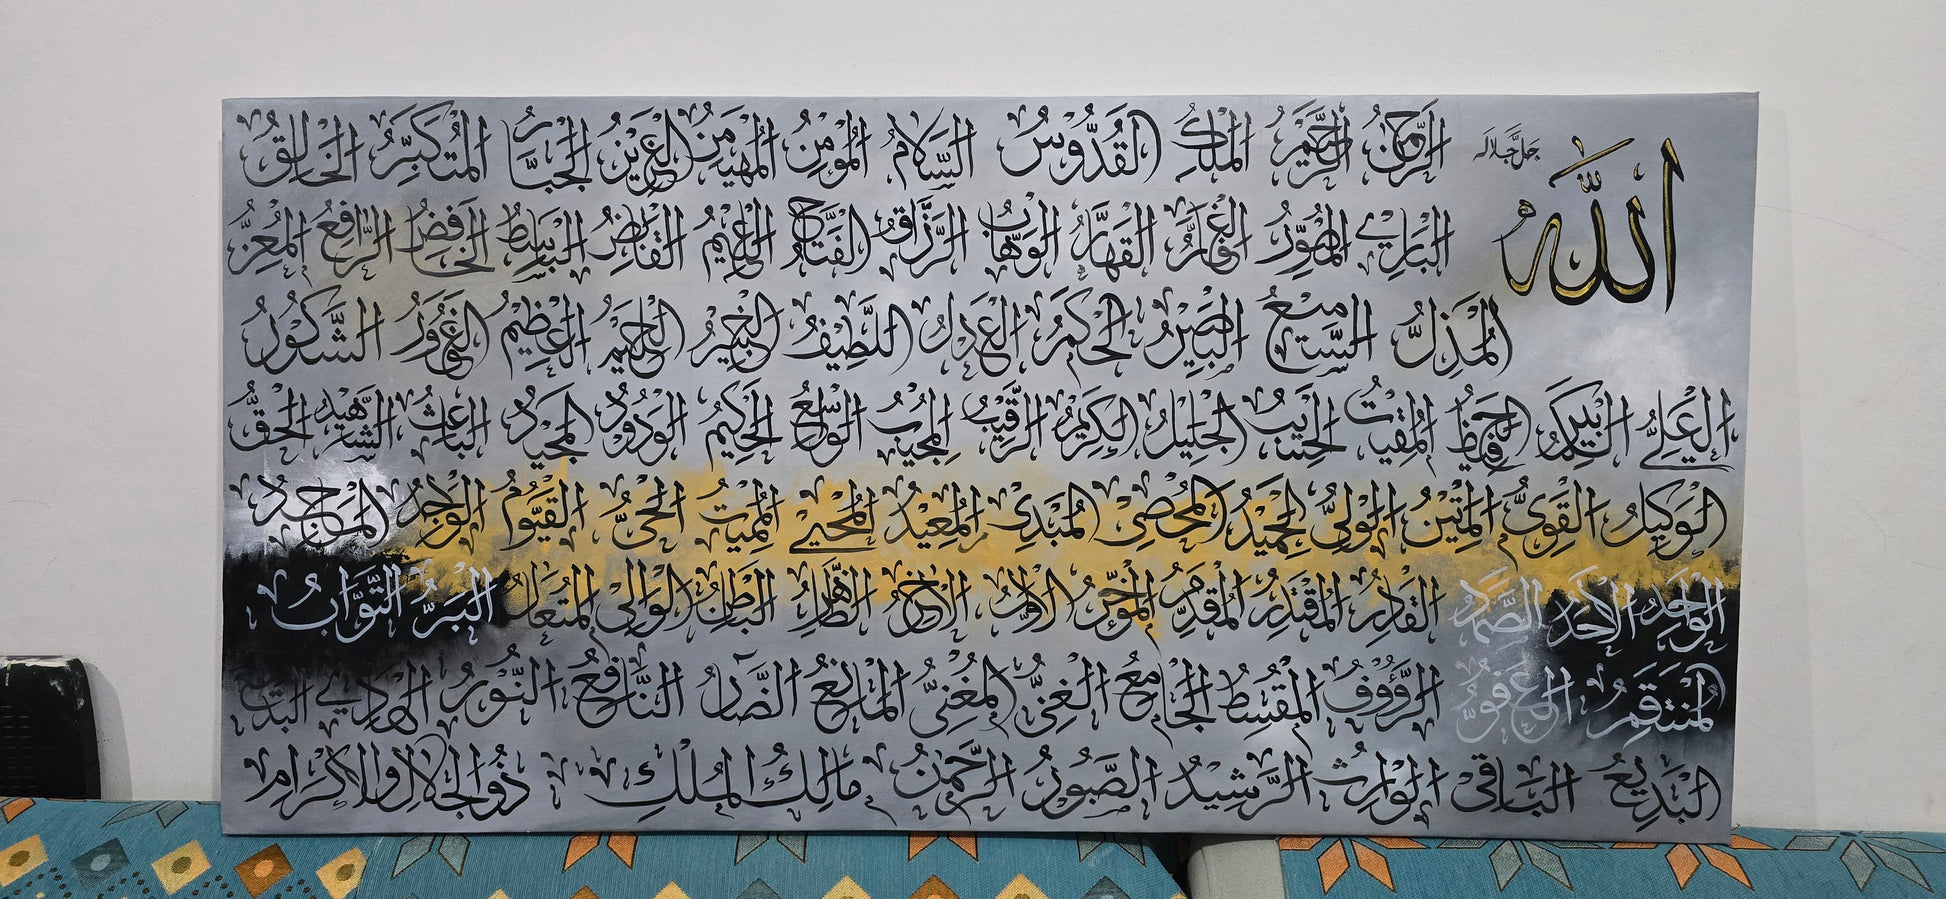 الله جَلَّ جَلَالَه
الرَّحْمٰنُ الرَّحِيْمُ المَلِكُ القُدُّوْسُ السَّلَامُ المُؤْمِنُ المُهَيْمِنُ العَزِيْزُ الجَبَّارُ المُتَكَبِّرُ الخَالِقُ
البَارِيُ المُصَوِّرُ الغَفَّارُ القَهَّارُ الوَهَّابُ الرَّزَّاقُ الفَتَّاحُ العَلِيْمُ القَابِضُ البَاسِطُ الخَافِضُ الرَّافِعُ المُعِزُّ
المُذِلُّ السَّمِيْعُ البَصِيْرُ الحَكَمُ العَدْلُ اللَّطِيْفُ الخَبِيْرُ الحَلِيْمُ العَظِيْمُ الغَفُوْرُ الشَّكُوْرُ
العَلِيُّ الكَبِيْرُ الحَفِيْظُ المُقِيْتُ الحَسِيْبُ الجَلِيْلُ الكَرِيْمُ الرَّقِيْبُ المُجِيْبُ الوَاسِعُ الحَكِيْمُ الوَدُوْدُ المَجِيْدُ البَاعِثُ الشَّهِيْدُ الحَقُّ
الوَكِيْلُ القَوِيُّ المَتِيْنُ الوَلِيُّ الحَمِيْدُ المُحْصِى المُبْدِئُ المُعِيْدُ المُحْيِي المُمِيْتُ الحَيُّ القَيُّوْمُ الوَاجِدُ المَاجِدُ
الوَاحِدُ الأَحَدُ الصَّمَدُ القَادِرُ المُقْتَدِرُ المُقَدِّمُ المُؤَخِّرُ الأَوَّلُ الأَخِرُ الظَّاهِرُ البَاطِنُ الوَالِي المُتَعَالُ البَرُّ التَّوَّابُ
المُنْتَقِمُ العَفُوُّ الرَّؤُوْفُ المُقْسِطُ الجَامِعُ الغَنِيُّ المُغْنِيُّ المَانِعُ الضَّآرُّ النَّافِعُ النُّوْرُ الهَادِي البَدِيْعُ
البَدِيْعُ البَاقِي الوَارِثُ الرَّشِيْدُ الصَّبُوْرُ الرَّحْمٰنُ مَالِكُ المُلْكِ ذُوالجَلَالِ وَالإِكْرَامِ